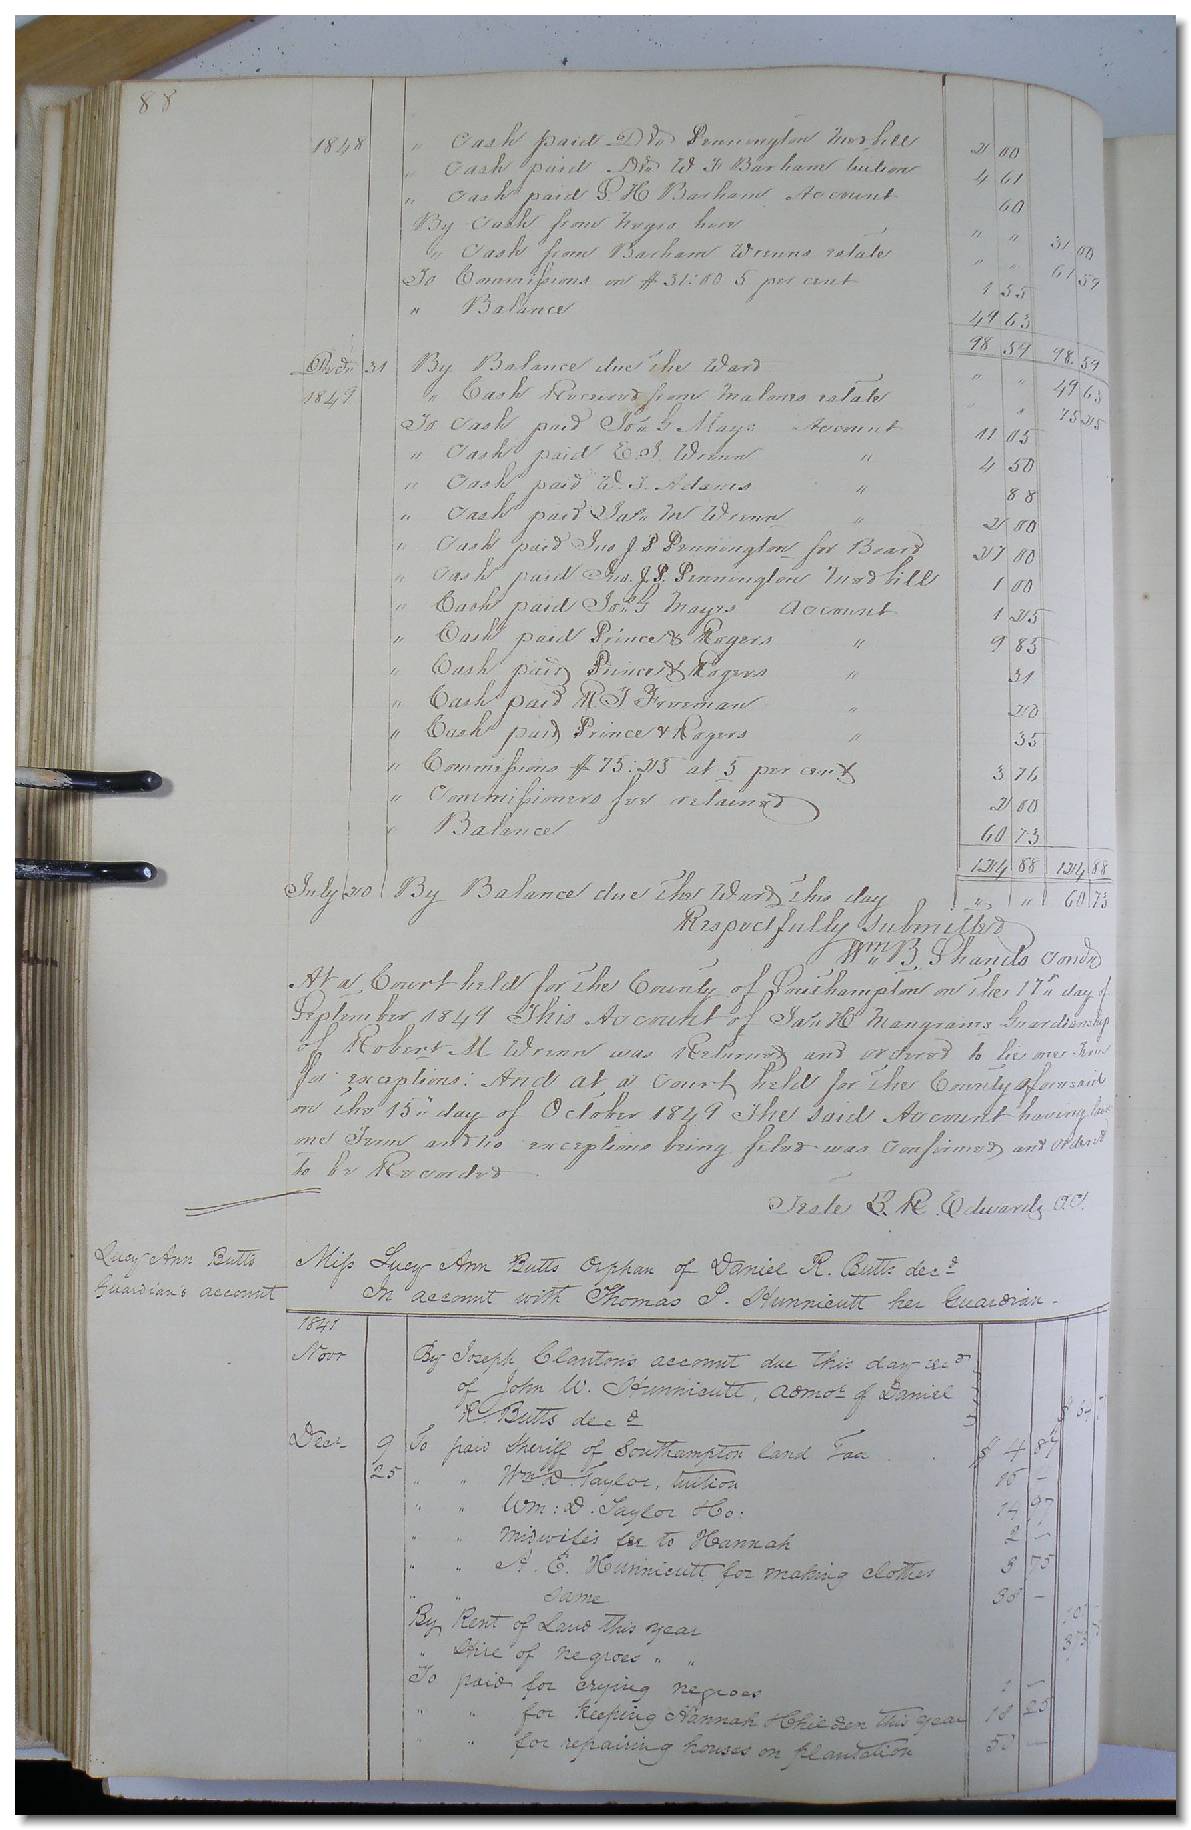 88
1848 " Cash paid Dto Pennington Med bill 2 00
" Cash paid Dto W F Barham tuition 4 61
" Cash paid S. H Barham Account 60
By Cash from Negro hire " " 31 00
" Cash from Barham Wrenns estate " " 61 59
To Commissions on $31:00 5 per cent 1 55
" Balance 49 63
98 59 98 59
31 By Balance due the Ward " " 49 63
1849 " Cash Received from Malones estate " " 75 25
To Cash paid Jos. G Mays Account 11 05
" Cash paid E. J. Wrenn " 4 50
" Cash paid W. J. Adams " 88
" Cash paid Jas. M Wrenn " 2 00
" Cash paid Jno J P Pennington for Board 27 00
" Cash paid Jno. J. P. Pennington Med bill 1 00
" Cash paid Jos. G Mayes Account 1 25
" Cash paid Prince & Rogers " 9 85
" Cash paid Prince & Rogers " 31
" Cash paid R T Freeman " 20
" Cash paid Prince & Rogers " 35
" Commissions $75:25 at 5 per cent 3 76
" Commissioners fee retained 2 00
" Balance 60 73
124 88 124 88
July 20 By Balance due the Ward this day " " 60 73
Respectfully submitted
Wm B. Shands
At a Court held for the County of Southampton on the 17th day of
September 1849 This Account of Jas. H Mangrams Guardianship
of Robert M Wrenn was Returned and ordered to lie one Term
for exceptions: And at a Court held for the County aforesaid
on the 15th day of October 1849 The said Account having lain
one Term and no exceptions being filed was Confirmed and ordered
to be Recorded
Teste L. R. Edwards C.C.
Lucy Ann Butts
Guardian's account
Miss Lucy Ann Butts Orphan of Daniel R. Butts decd
In account with Thomas P. Hunnicutt her Guardian.
1841
Novr By Joseph Clanton's account due this day recd
of John W. Hunnicutt, admor of Daniel
R Butts decd
Decr 9 To paid Sheriff of Southampton land Tax $ 4 87
25 " " Wm D. Taylor, tuition 16 –
" " Wm: D. Taylor 14 97
" " Midwife's fee to Hannah 2 –
" " A. E. Hunnicutt for making clothes 3 75
" " same 38 –
By Rent of Land this year
" Hire of negroes " "
To paid for crying negroes 1 –
" " for keeping Hannah & Children this year 18 25
" " for repairing houses on plantation 50 –